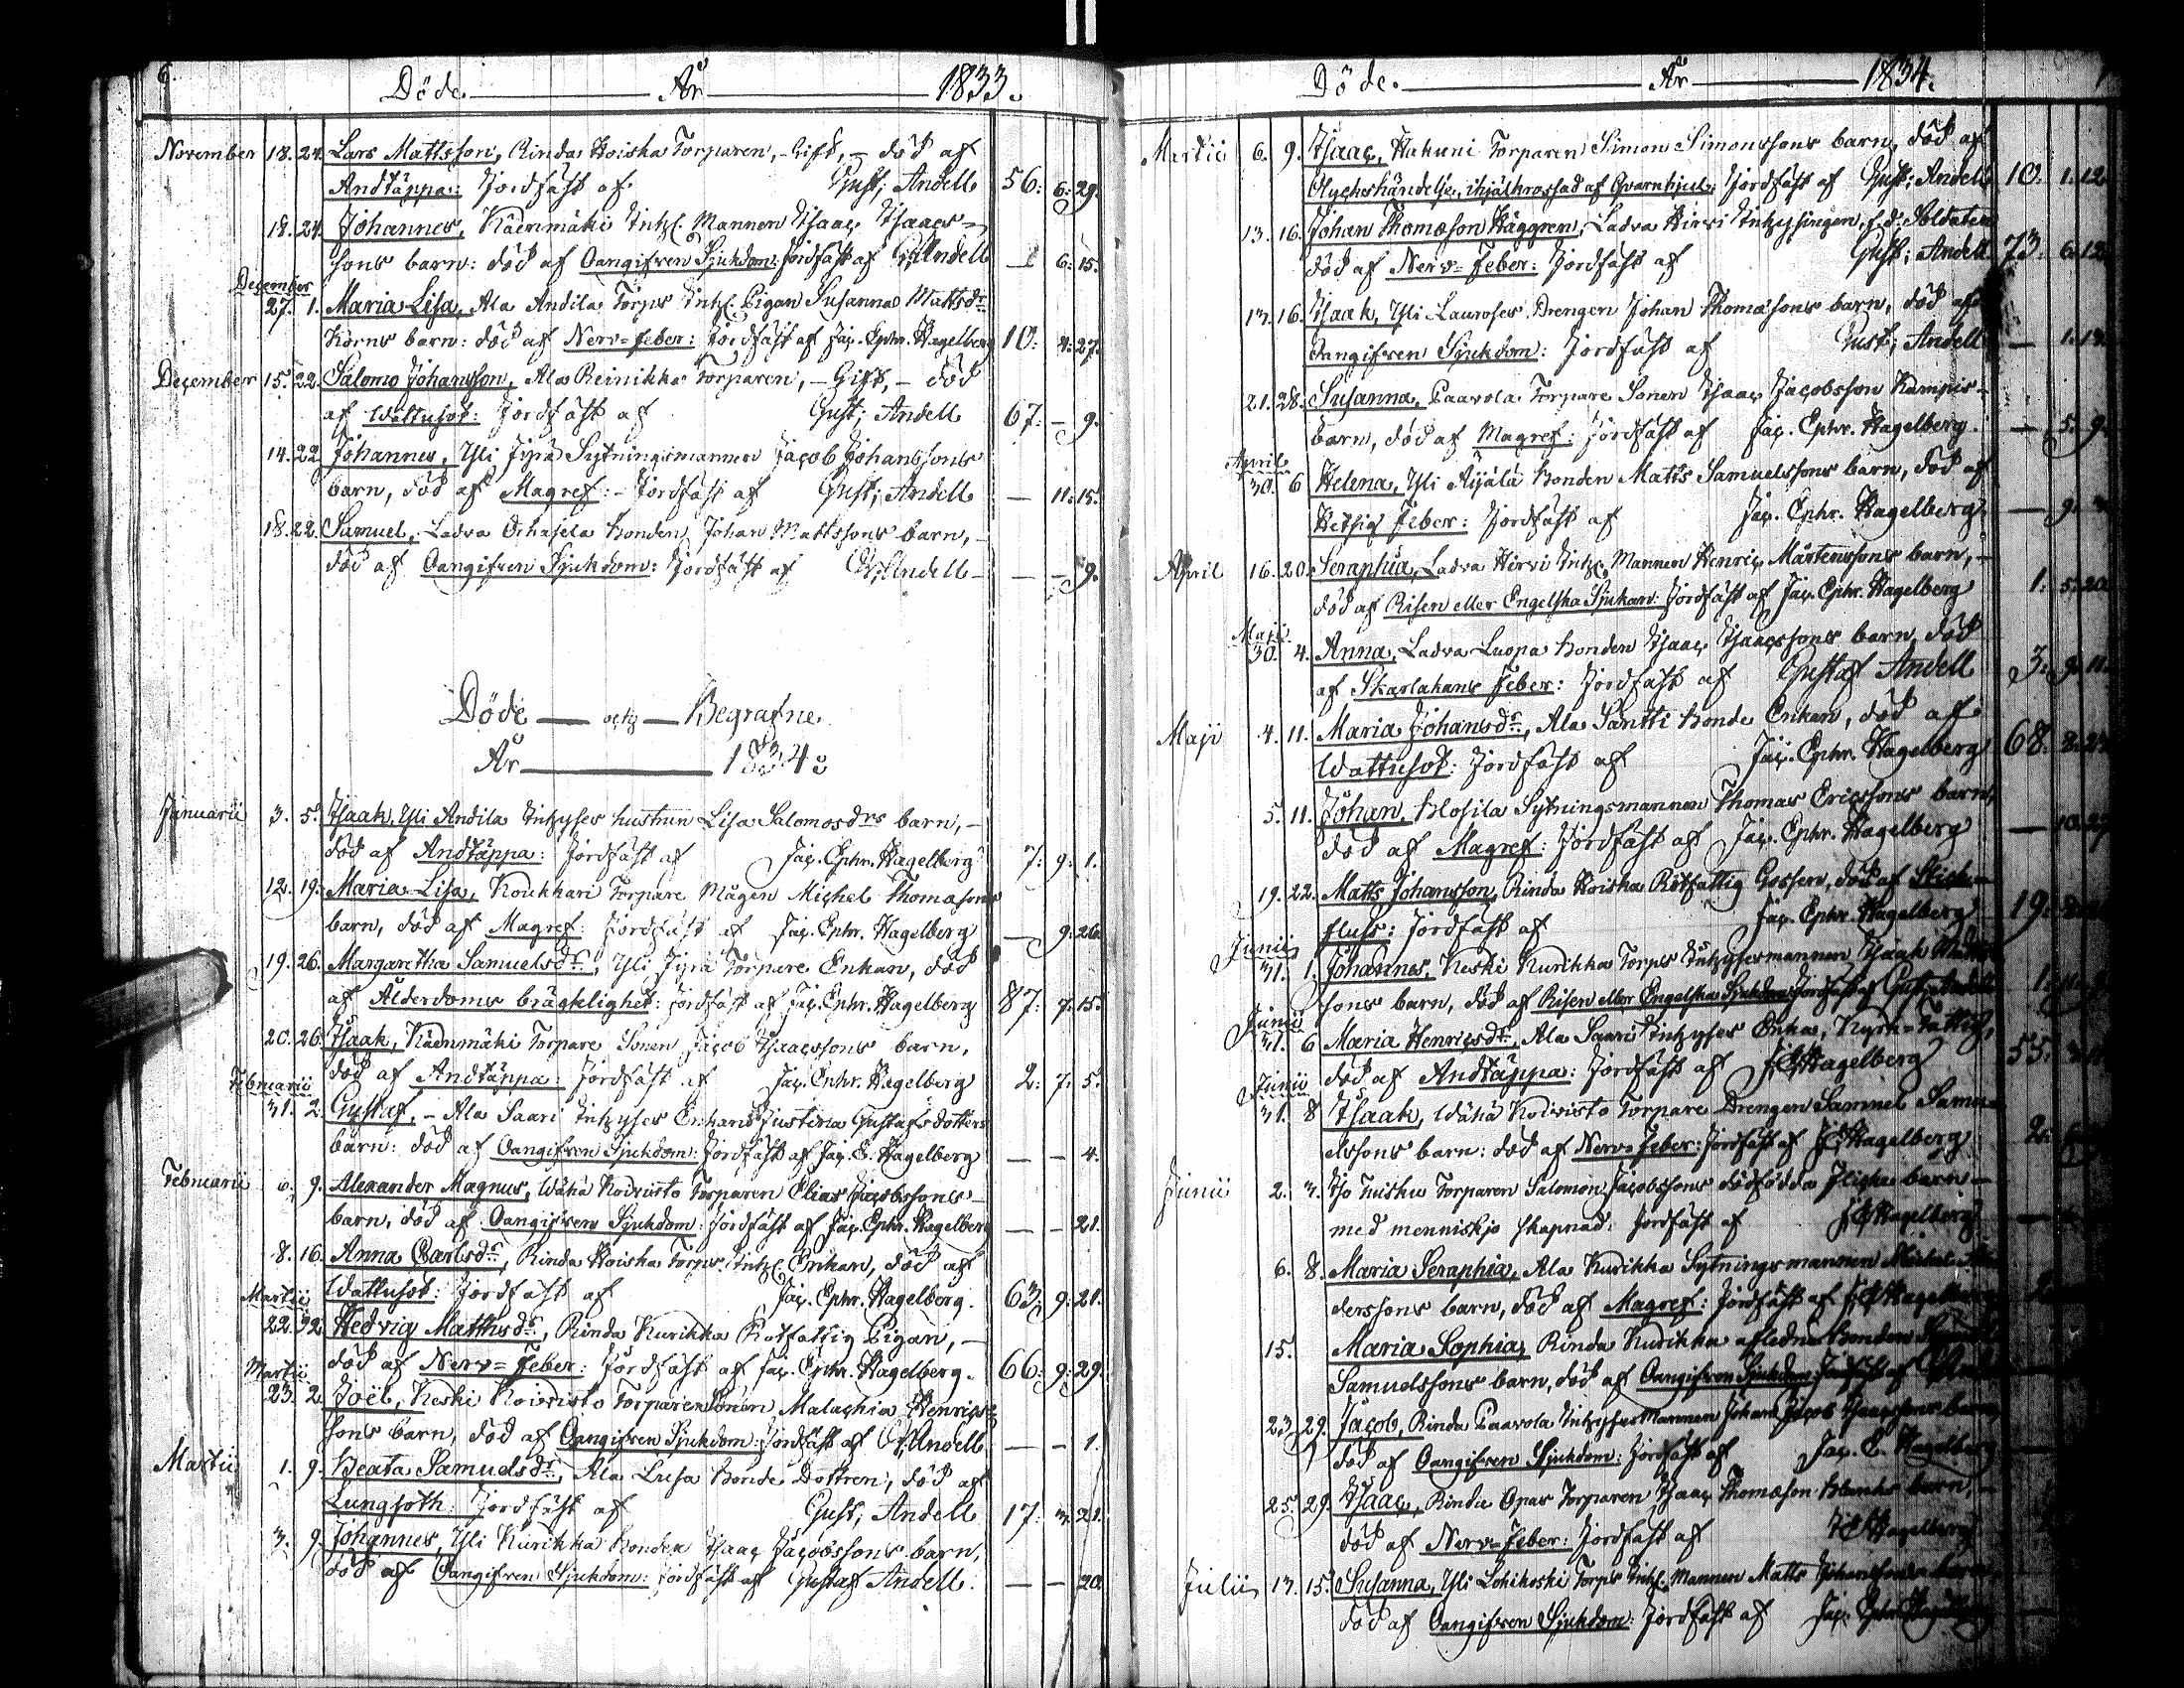 6.
Döde. År 1833.
November 18. 24. Lars Mattsson, Rinda Hoiska Torparen, - Gift, - död af
Andtäppa: Jordfäst af Gust; Andell 56: 6: 29.
18. 24. Johannes, Käenmäki Inhs. Mannen Isaac Isaacs-
sons barn: död af Oangifven Sjukdom: Jordfäst af G. Andell — 6: 15.
December
27. 1. Maria Lisa, Ala Andila Torps Inhs. Pigan Susanna Mattsdr
Körns barn: död af Nerv=feber: Jordfäst af Jac. Ephr. Hagelberg 10: 4: 27.
December 15. 22. Salomo Johansson, Ala Reinikka Torparen, - Gift, - död
af Wattusot: Jordfäst af Gust; Andell 67: — 9.
14. 22. Johannes, Yli Jyrä Sytningsmannen Jacob Johanssons
barn, död af Magref: - Jordfäst af Gust; Andell — 11: 15.
18. 22. Samuel, Ladva Orhasela bonden Johan Mattssons barn, -
död af Oangifven Sjukdom: Jordfäst af G. Andell — — 9.
Döde — och — Begrafne.
År 1834:
Januarii 3. 5. Isaak, Yli Andila Inhyses hustrun Lisa Salomosdrs barn, -
död af Andtäppa: Jordfäst af Jac. Ephr. Hagelberg 7: 9: 1.
12. 19. Maria Lisa, Koukkari Torpare Mågen Michel Thomasons
barn, död af Magref: Jordfäst af Jac. Ephr. Hagelberg — 9: 26.
19. 26. Margaretha Samuelsdr, Yli Jyrä Torpare Enkan, död
af Ålderdoms bräcklighet: Jordfäst af Jac. Ephr. Hagelberg 87: 7: 15.
20. 26. Isaak, Käenmäki Torpare Sonen Jacob Isaacssons barn,
död af Andtäppa: Jordfäst af Jac. Ephr. Hagelberg 2: 7: 5.
Februarii
31. 2. Gustaf, - Ala Saari Inhyses Enkans Justina Gustafsdotters
barn: död af Oangifven Sjukdom: Jordfäst af Jac. E. Hagelberg — — 4.
Februarii 6. 9. Alexander Magnus, Wähä Koivisto Torparen Elias Jacobssons
barn, död af Oangifven Sjukdom: Jordfäst af Jac. Ephr. Hagelberg — — 21.
8. 16. Anna Carlsdr, Rinda Hoiska Torps Inhs. Enkan, död af
Wattusot: Jordfäst af Jac. Ephr. Hagelberg. 63: 9: 21.
Martii
22. 2. Hedvig Mattsdr, Rinda Kurikka Rotfattig Pigan, -
död af Nerv=Feber: Jordfäst af Jac. Ephr. Hagelberg. 66: 9: 29.
Martii
23. 2. Joël, Keski Koivisto Torpare Sonen Malachia Henrics-
sons barn, död af Oangifven Sjukdom: Jordfäst af G. Andell — — 1.
Martii 1. 9. Beata Samuelsdr, Ala Lusa Bonde Dottren, död af
Lungsoth: Jordfäst af Gust; Andell 17: 3: 21.
3. 9. Johannes, Yli Kurikka bonden Isaac Jacobssons barn,
död af Oangifven Sjukdom: jordfäst af Gustaf Andell. — — 20.
Döde. År 1834.
Martii 6. 9. Isaac, Hakuni Torparen Simon Simonssons barn, död af
Olyckshändelse, ihjälkrossad af Qvarnhjul: Jordfäst af Gust; Andell 10: 1. 12.
13. 16. Johan Thomæson Häggren, Ladva Hirvi Inhysingen, f.d. Soldaten
död af Nerv=Feber: Jordfäst af Gust; Andell 73: 6. 12
13. 16. Isaak, Yli Lauroses Drengen Johan Thomæsons barn, död af
Oangifven Sjukdom: Jordfäst af Gust; Andell — 1.
21. 28. Susanna, Paavola Torpare Sonen Isaac Jacobsson Kampis-
barn, död af Magref: Jordfäst af Jac. Ephr. Hagelberg. — 5. 9.
April
30. 6 Helena, Yli Äijälä bonden Matts Samuelssons barn, död af
Hetsig Feber: Jordfäst af Jac. Ephr. Hagelberg — 9.
April 16. 20. Seraphia, Ladva Hirvi Inhs. Mannen Henric Mårtenssons barn, -
död af Risen eller Engelska Sjukan: Jordfäst af Jac. Ephr. Hagelberg 1. 5: 20
Maji
30. 4. Anna, Ladva Luopa bonden Isaac Isaacssons barn, död
af Skarlakans Feber: Jordfäst af Gustaf Andell 3. 9. 11.
Maji 4. 11. Maria Johansdr, Ala Säntti Bonde Enkan, död af
Wattusot: Jordfäst af Jac. Ephr. Hagelberg 68. 8.
5. 11. Johan, Klosila Sytningsmannen Thomas Ericssons barn,
död af Magref: Jordfäst af Jac. Ephr. Hagelberg — 10.
19. 22. Matts Johansson, Rinda Hoiska Rotfattig Gossen, död af Stick-
fluss: Jordfäst af Jac. Ephr. Hagelberg 19.
Junii
31. 1. Johannes, Keski Kurikka Torps Inhysesmannen Isaak
sons barn, död af Risen eller Engelska Sjukdom: Jordfäst af Gust. Andell 1.
Junii
31. 6 Maria Henricsdr, Ala Saari Inhyses Enka, Kyrk=Fattig,
död af Andtäppa: Jordfäst af J E Hagelberg 55.
Junii
31. 8 Isaak, Wähä Koivisto Torpare Drengen Samuel Samu-
elssons barn: död af Nerv=Feber: Jordfäst af J E Hagelberg 2.
Junii 2. 3. Iso Tuisku Torparen Salomon Jacobssons dödfödda Flicke barn -
med menniskjo skapnad: Jordfäst af J E Hagelberg —
6. 8. Maria Seraphia, Ala Kurikka Sytningsmannen
derssons barn, död af Magref: Jordfäst af J E Hagelberg
15. Maria Sophia, Rinda Kurikka afledne bonden
Samuelssons barn, död af Oangifven Sjukdom: Jordfäst af
23. 29. Jacob, Rinda Paavola Inhyses Mannen Johan Jacob Isaacssons barn
död af Oangifven Sjukdom: Jordfäst af Jac. E. Hagelberg
25. 29. Isaac, Rinda Opas Torparen Isaac Thomæson barn, -
död af Nerv=Feber: Jordfäst af J E Hagelberg
Julii 13. 15. Susanna, Yli Lohikoski Torps Inhs. Mannen Matts Johanssons barn
död af Oangifven Sjukdom: Jordfäst af Jac. Ephr. Hagelberg